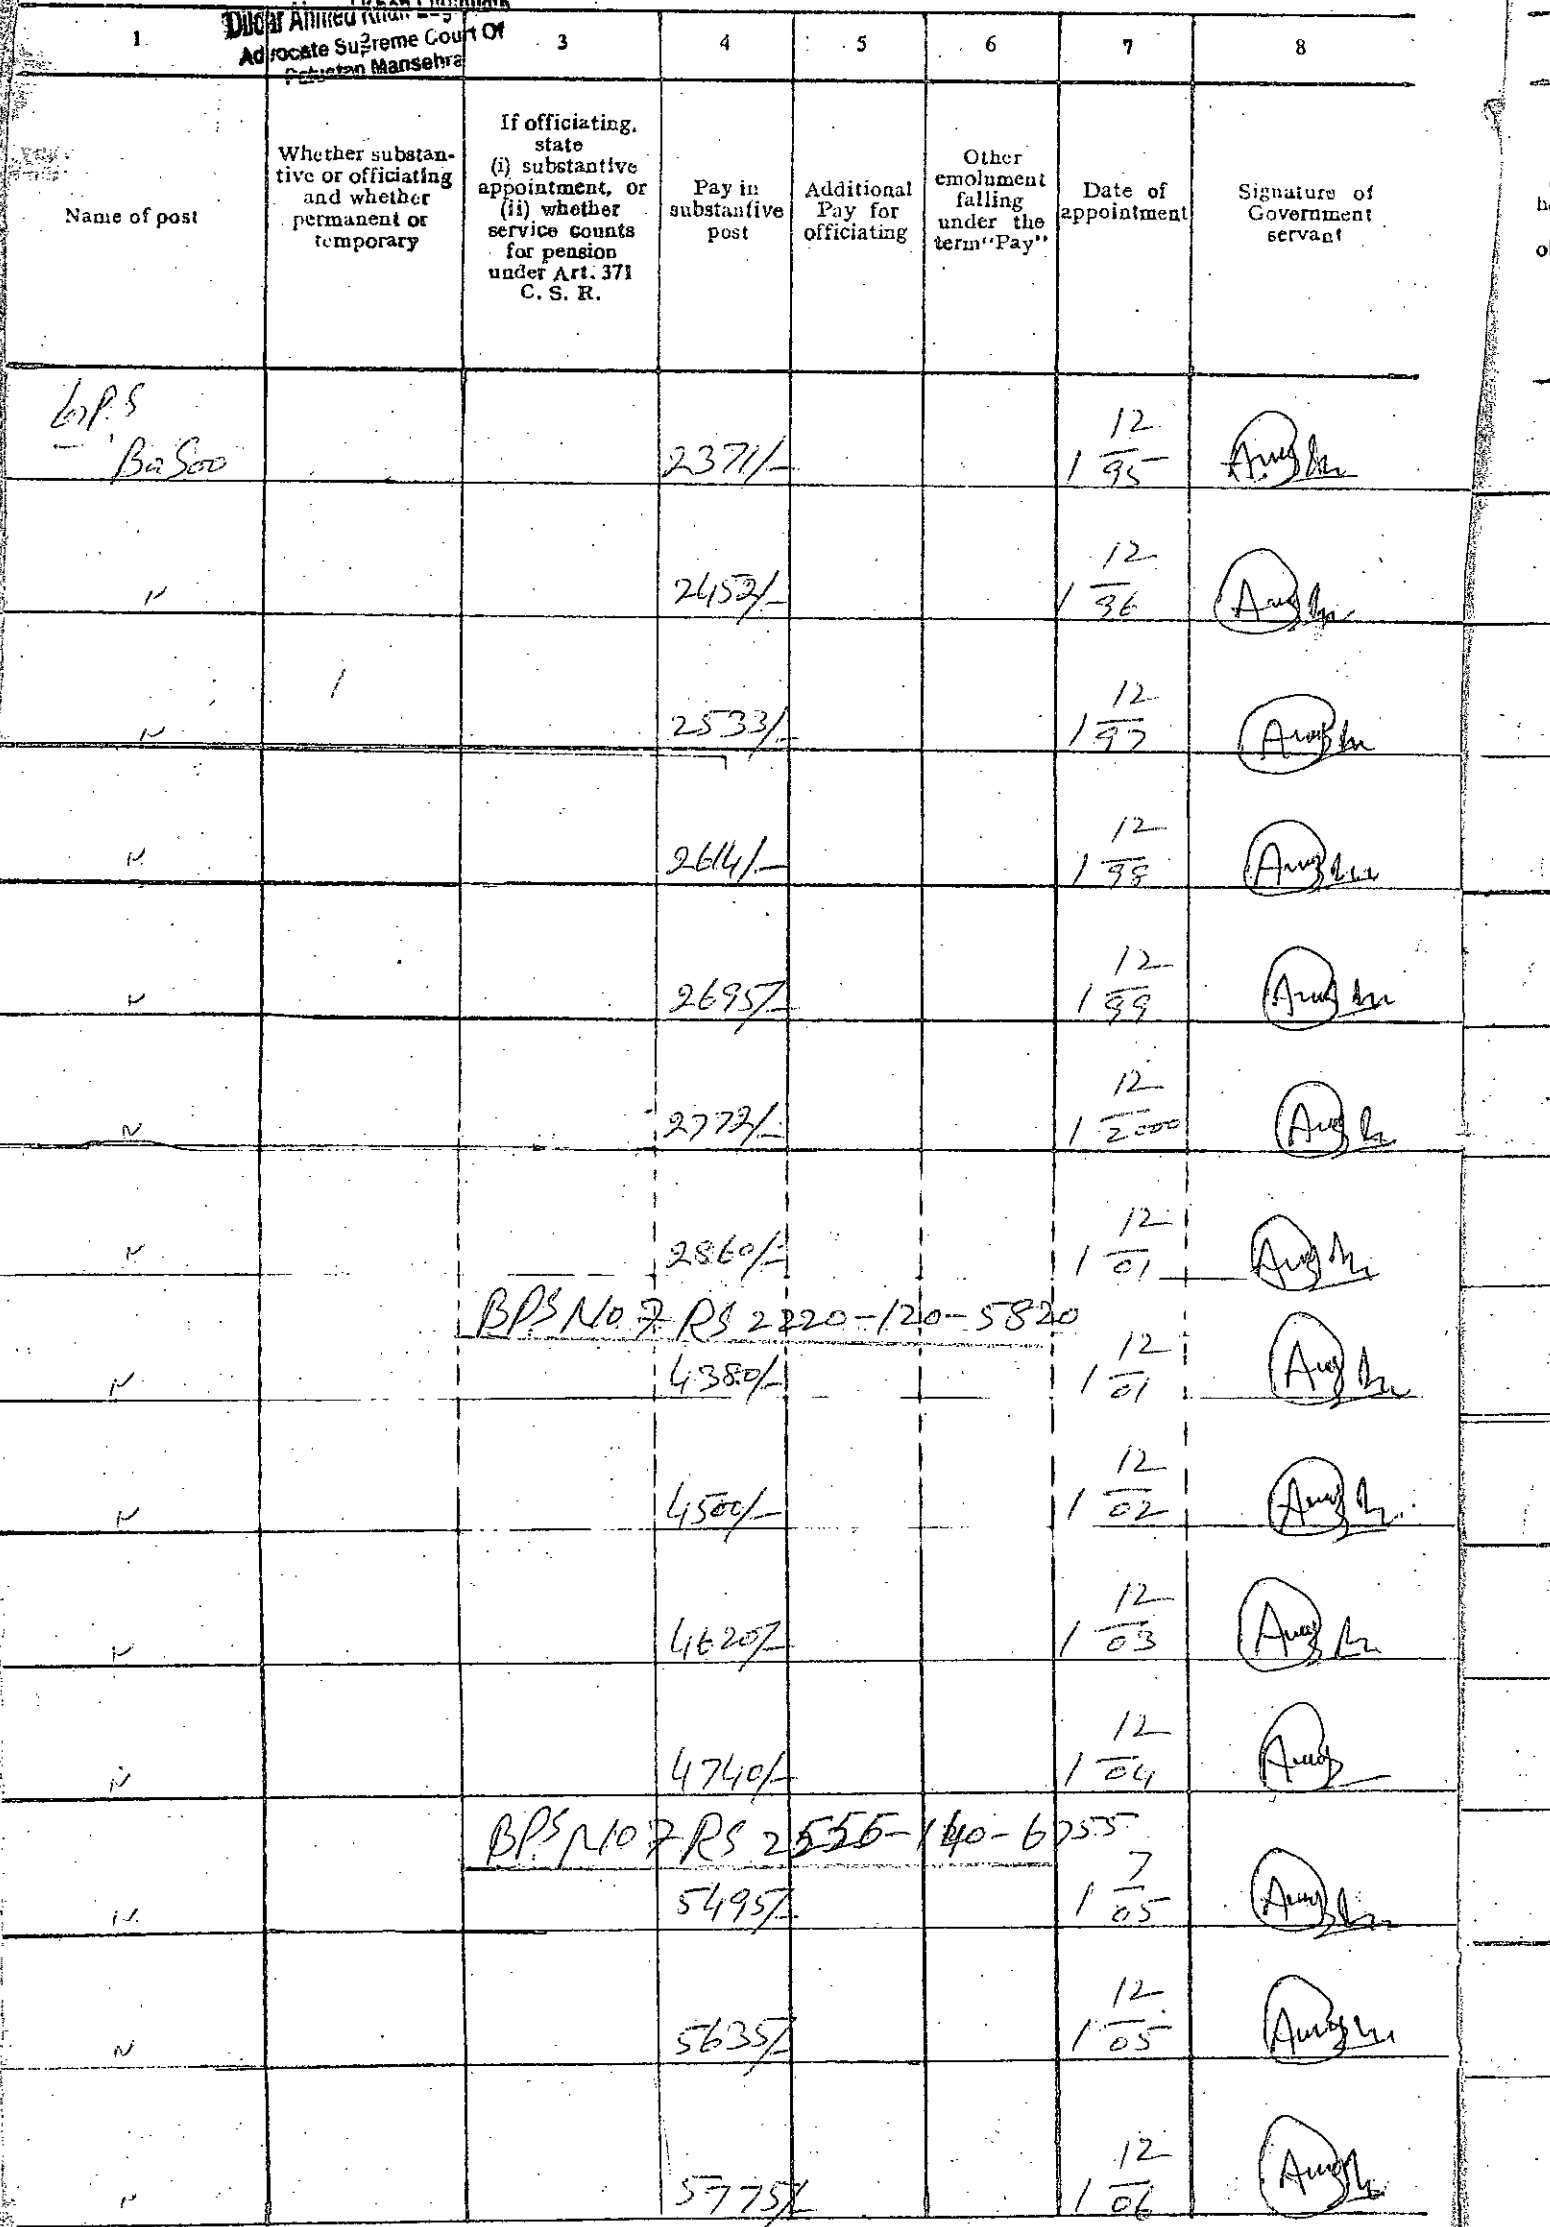 Dildar Ahmed Khan
Advocate Supreme Court Of
Pakistan Mansehra
1 2 3 4 5 6 7 8
Name of post
Whether substan-
tive or officiating
and whether
permanent or
temporary
If officiating,
state
(i) substantive
appointment, or
(ii) whether
service counts
for pension
under Art. 371
C. S. R.
Pay in
substantive
post
Additional
Pay for
officiating
Other
emolument
falling
under the
term "Pay"
Date of
appointment
Signature of
Government
servant
G.P.S
Ba Soo 2371/- 1 12/95
〃 2452/- 1 12/96
〃 2533/- 1 12/97
〃 2614/- 1 12/98
〃 2695/- 1 12/99
〃 2772/- 1 12/2000
〃 2860/- 1 12/01
BPS No 7 RS 2220-120-5820
〃 4380/- 1 12/01
〃 4500/- 1 12/02
〃 4620/- 1 12/03
〃 4740/- 1 12/04
BPS No 7 RS 2555-140-6755
〃 5495/- 1 7/05
〃 5635/- 1 12/05
〃 5775/- 1 12/06